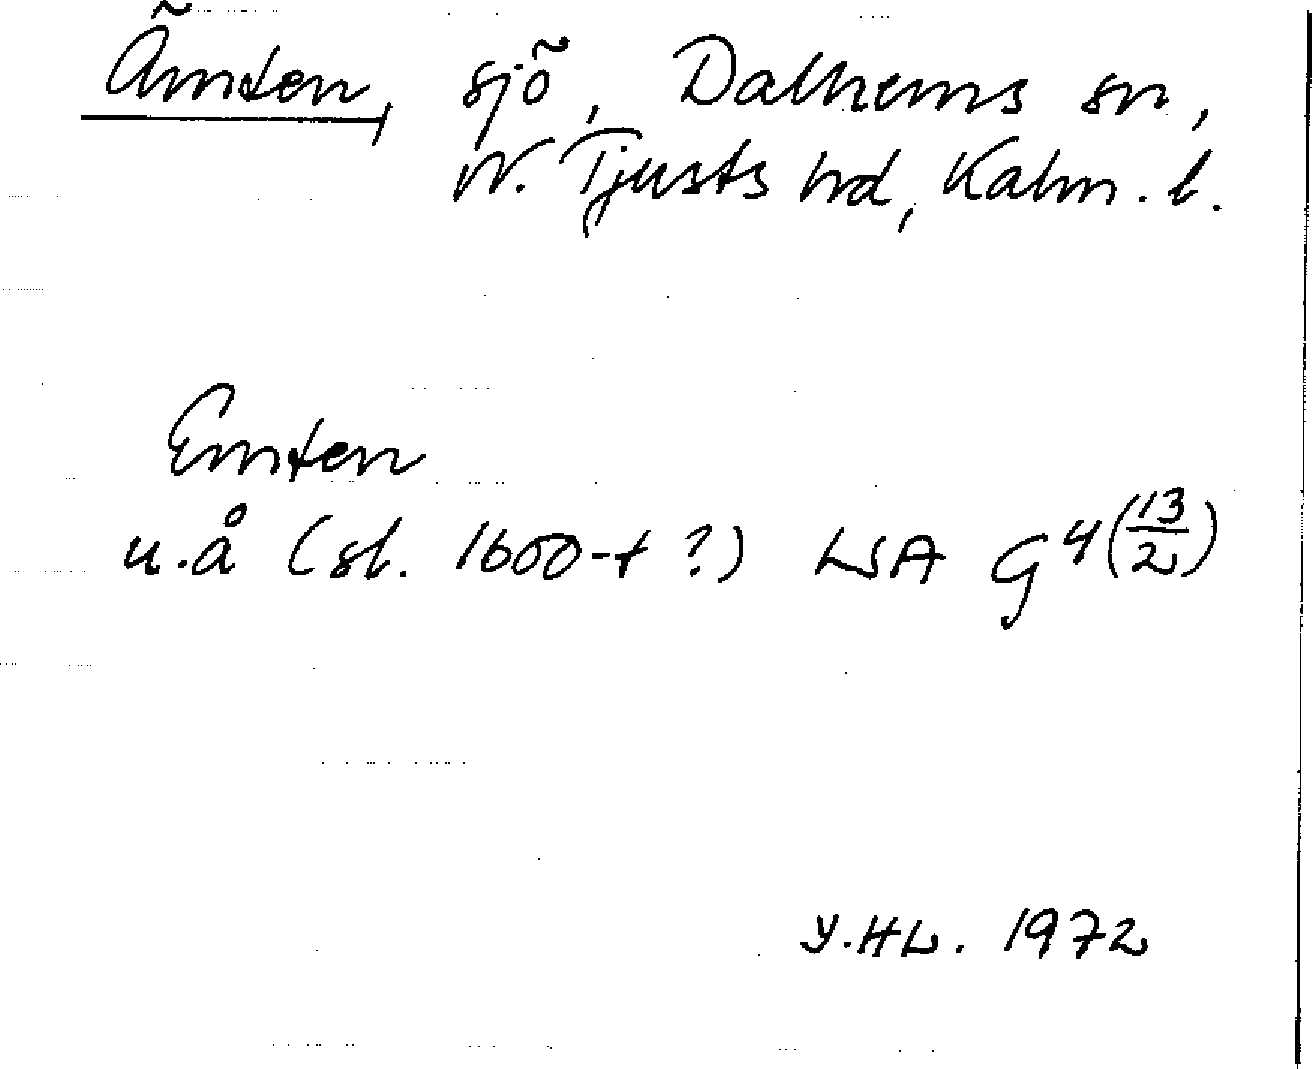 Ämten, sjö, Dalhems sn,
N. Tjusts hd, Kalm. l.
Emten
u.å (sl. 1600-t ?) LSA G4(13/2)
Y.HL. 1972